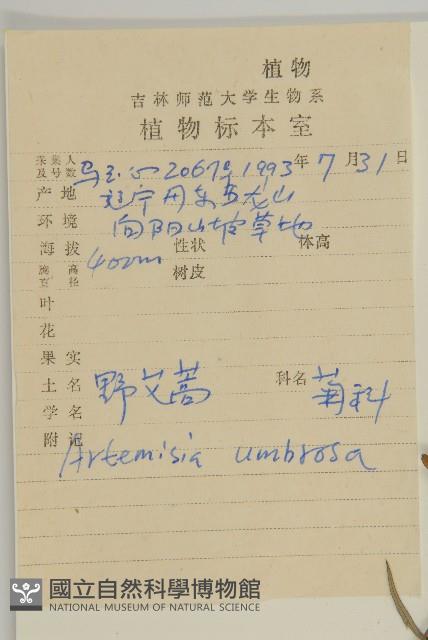 植物
吉林师范大学生物系
植物标本室
采集人及号数 马玉心 2067号 1993年7月31日
产地 辽宁丹东五龙山
环境 向阳山坡草地
海拔 402m 性状 体高
胸高直径 树皮
叶
花
果实
土名 野艾蒿 科名 菊科
学名
附记 Artemisia umbrosa
國立自然科學博物館
NATIONAL MUSEUM OF NATURAL SCIENCE